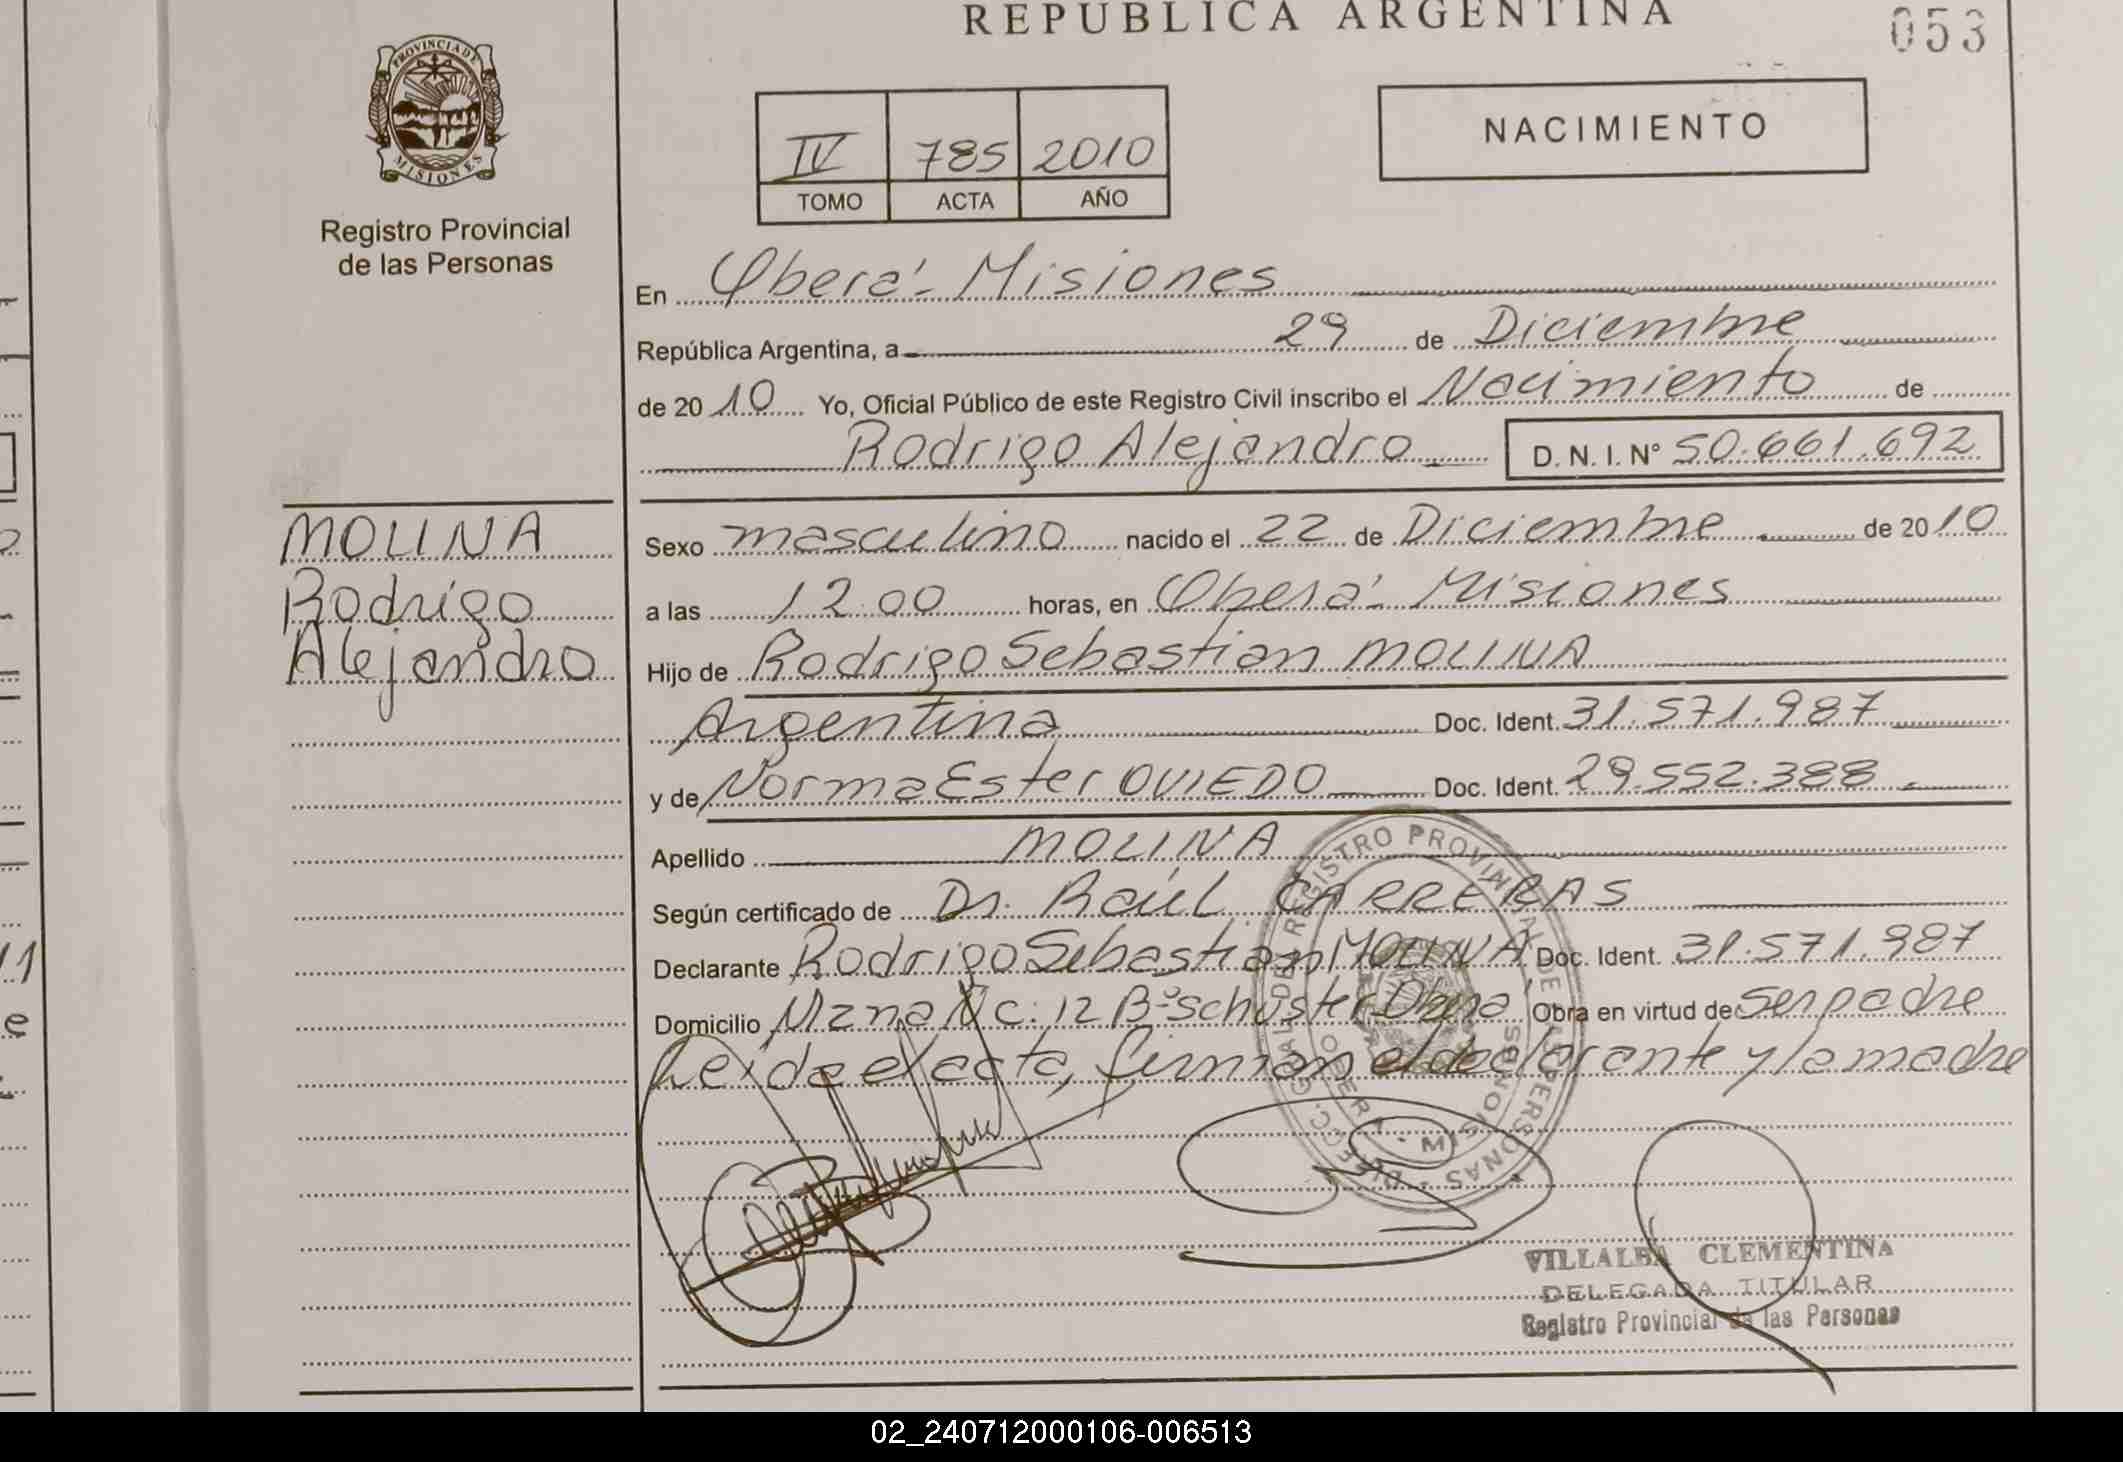 REPUBLICA ARGENTINA
053
PROVINCIA DE MISIONES
Registro Provincial
de las Personas
IV 785 2010
TOMO ACTA AÑO
NACIMIENTO
En Oberá - Misiones
República Argentina, a 29 de Diciembre
de 2010 Yo, Oficial Público de este Registro Civil inscribo el Nacimiento de
Rodrigo Alejandro D. N. I. N° 50.661.692
MOLINA
Rodrigo
Alejandro
Sexo masculino nacido el 22 de Diciembre de 2010
a las 12:00 horas, en Oberá - Misiones
Hijo de Rodrigo Sebastian MOLINA
Argentina Doc. Ident. 31.571.987
y de Norma Ester OVIEDO Doc. Ident. 29.552.388
Apellido MOLINA
Según certificado de Dr. Raúl CARRERAS
Declarante Rodrigo Sebastian MOLINA Doc. Ident. 31.571.987
Domicilio Mzna N c: 12 B° Schuster Oberá Obra en virtud de ser padre
Leida el acta, firman el declarante y la madre
REGISTRO PROVINCIAL DE LAS PERSONAS
OBERA - MISIONES
VILLALBA CLEMENTINA
DELEGADA TITULAR
Registro Provincial de las Personas
02_240712000106-006513